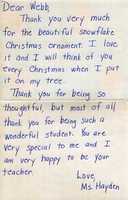 Dear Webb,
Thank you very much
for the beautiful snowflake
Christmas ornament. I love
it and I will think of you
every Christmas when I put
it on my tree.
Thank you for being so
thoughtful, but most of all
thank you for being such a
wonderful student. You are
very special to me and I
am very happy to be your
teacher.
Love,
Ms. Hayden